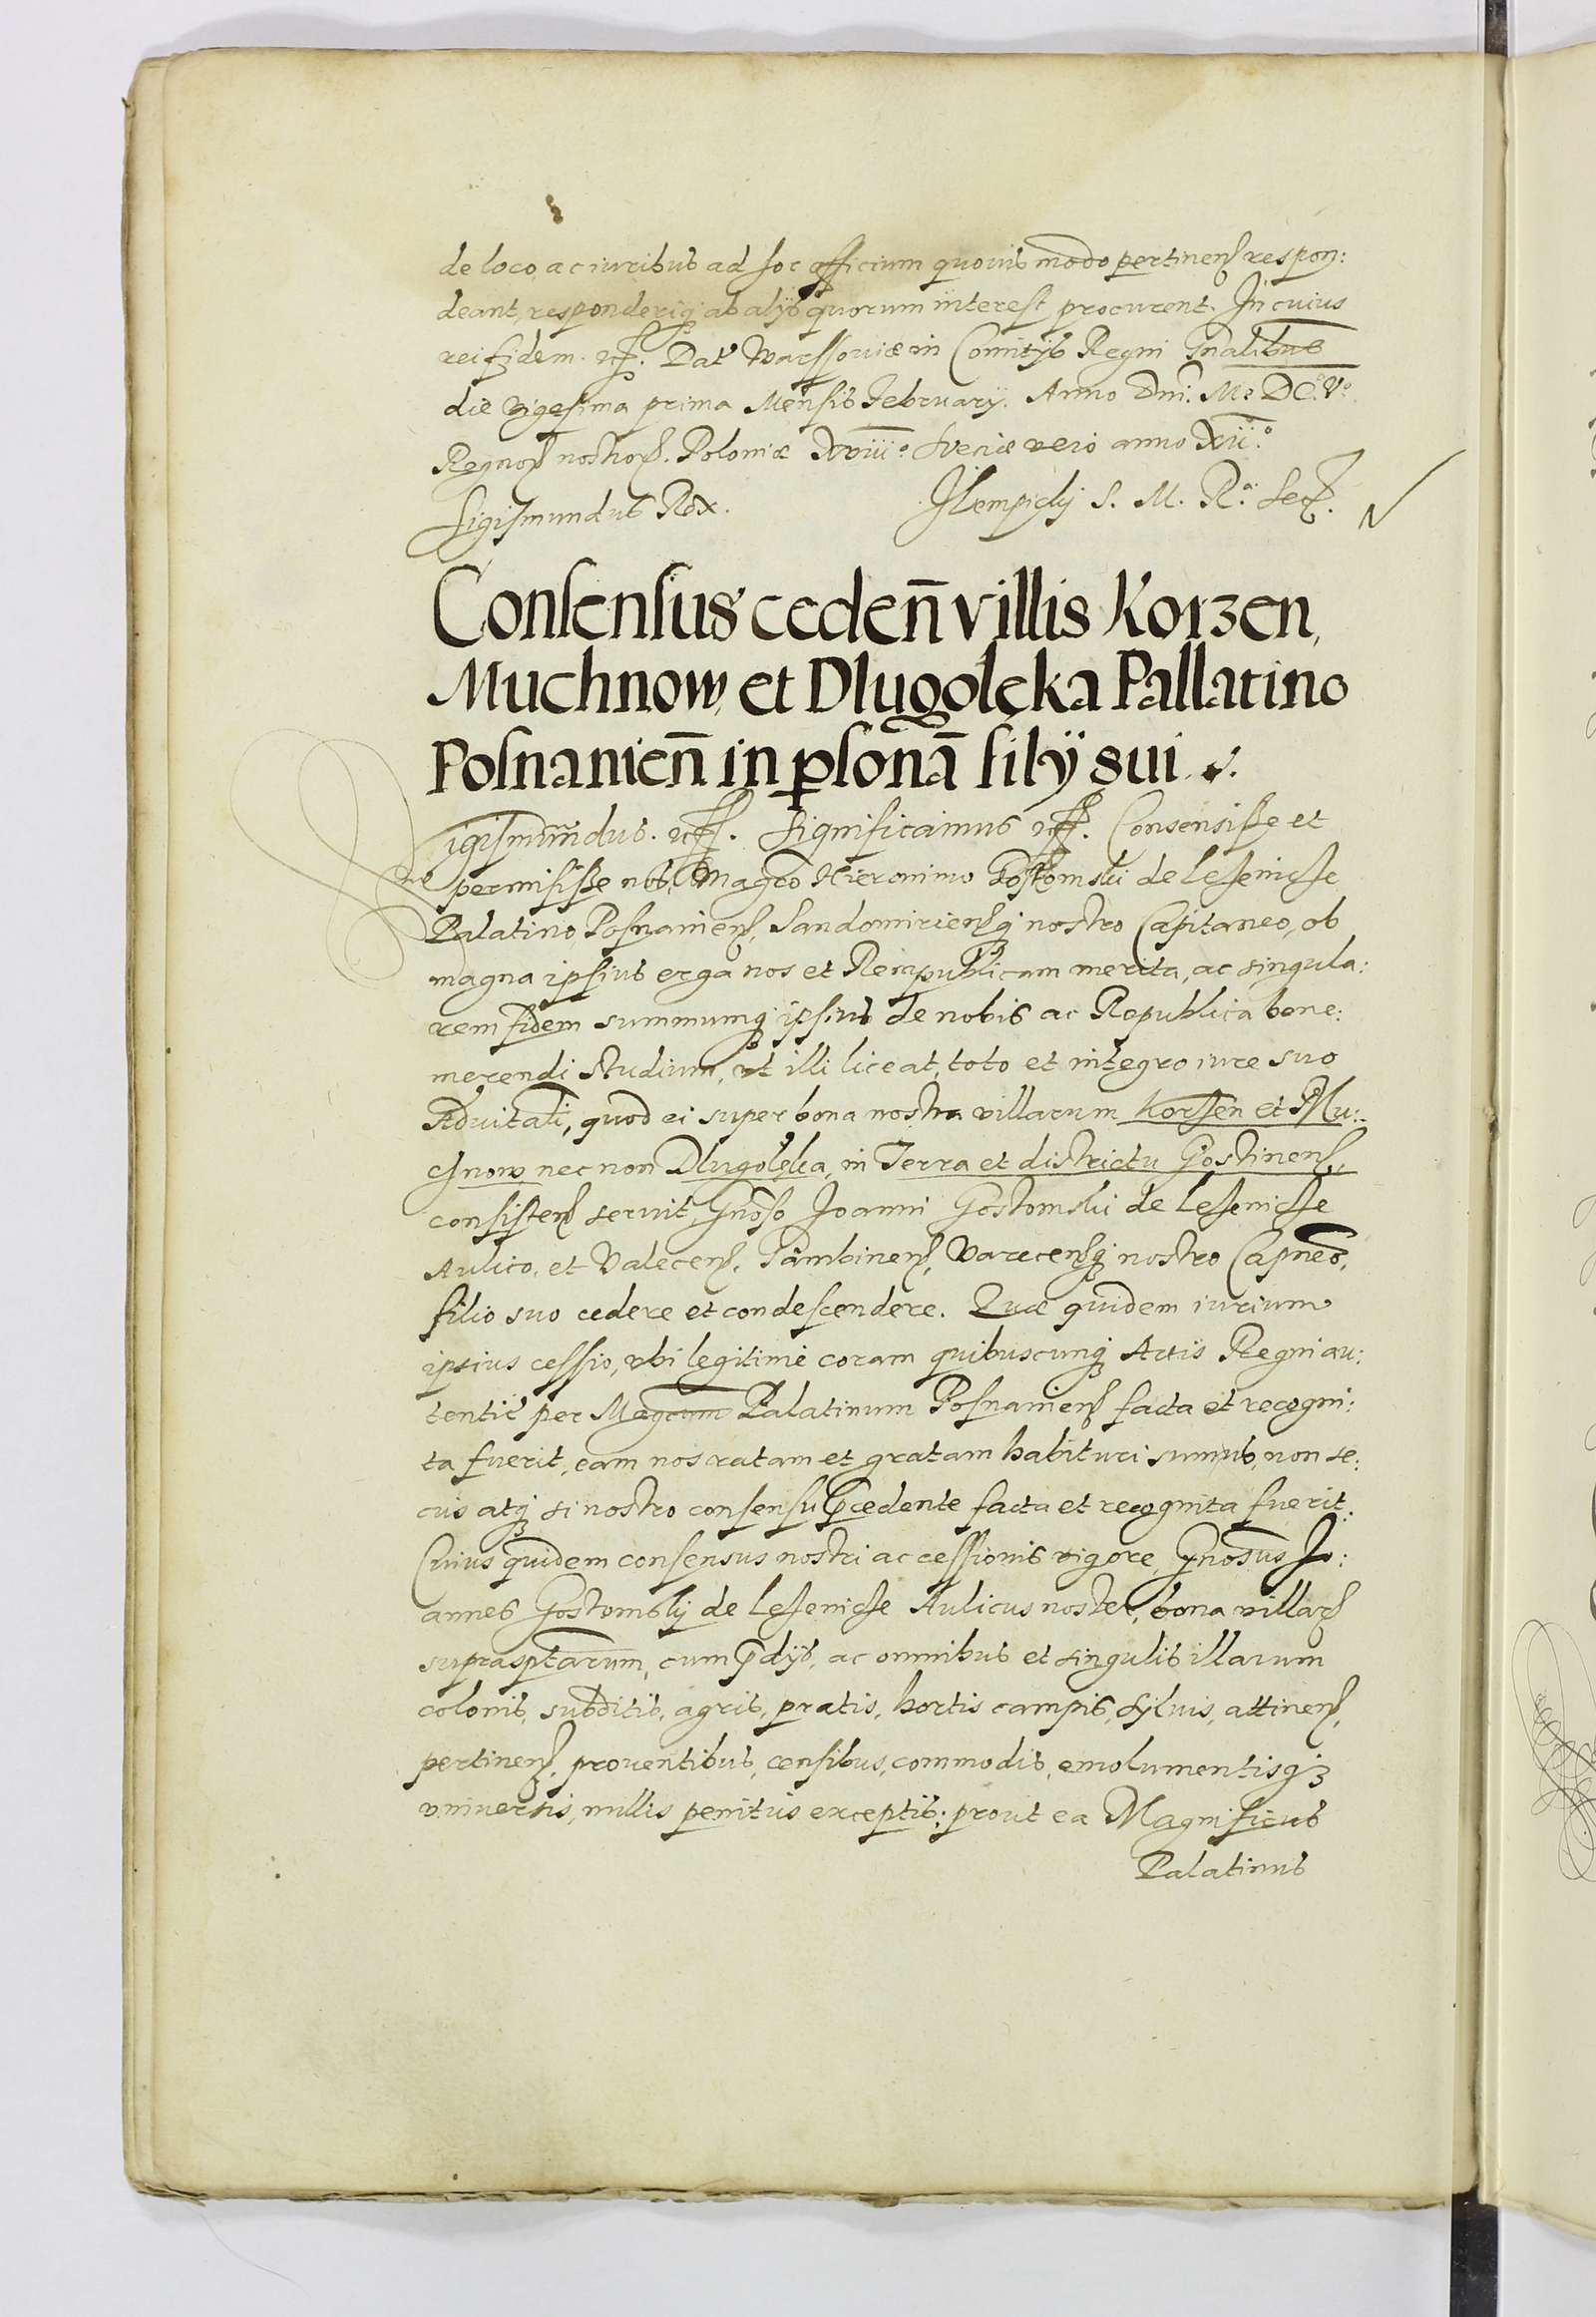 de loco ac iuribus ad hoc officium quouis modo pertinen respon:
deant, responderiq ab alijs quorum interest procurent. In cuius
rei fidem. etc. Dat Warssouiæ in Comitijs Regni Gnalibus
die vigesima prima Mensis February. Anno Dni. Mº DCº Vº
Regnor nostror. Poloniæ XVIIIº. Sveciæ vero anno XIIº.
Sigismundus Rex. S. M. Rª. Secr.
Consensus ceden villis Korzen,
Muchnow, et Dlugolęka Pallatino
Posnanien in psona filÿ sui
Sigismundus. etc. Significamus etc. Consensisse et
permisisse nos, Magco Hieronimo Gostomski de Lesenicze
Palatino Posnanien, Sandomirienq nostro Capitaneo, ob
magna ipsius erga nos et Rempublicam merita, ac singula:
rem fidem summumq ipsius de nobis ac Republica bene:
merendi studium, vt illi liceat, toto et integro iure suo
Aduitali, quod ei super bona nostra villarum Korssen et Mu:
chnow, nec non Dlugolęka, in Terra et districtu Gostinen,
consisten seruit, Gnoso Joanni Gostomski de Lesenicze
Aulico, et Valecen, Pambinen, Varecenq nostro Capneo,
filio suo cedere et condescendere. Quæ quidem iurium
ipsius cessio, vbi legitime coram quibuscunq Actis Regni au:
tentic per Magcum Palatinum Posnanien facta et recogni:
ta fuerit, eam nos ratam et gratam habituri sumus, non se:
cus atq si nostro consensu pcedente facta et recognita fuerit.
Cuius quidem consensus nostri ac cessionis vigore, Gnosus Jo:
annes Gostomsky de Lesenicze Aulicus noster, bona villar
suprasptarum, cum pdijs, ac omnibus et singulis illarum
colonis, subditis, agris, pratis, hortis campis, sylvis, attinen,
pertinen, prouentibus, censibus, commodis, emolumentisq
vniuersis, nullis penitus exceptis; prout ea Magnificus
Palatinus